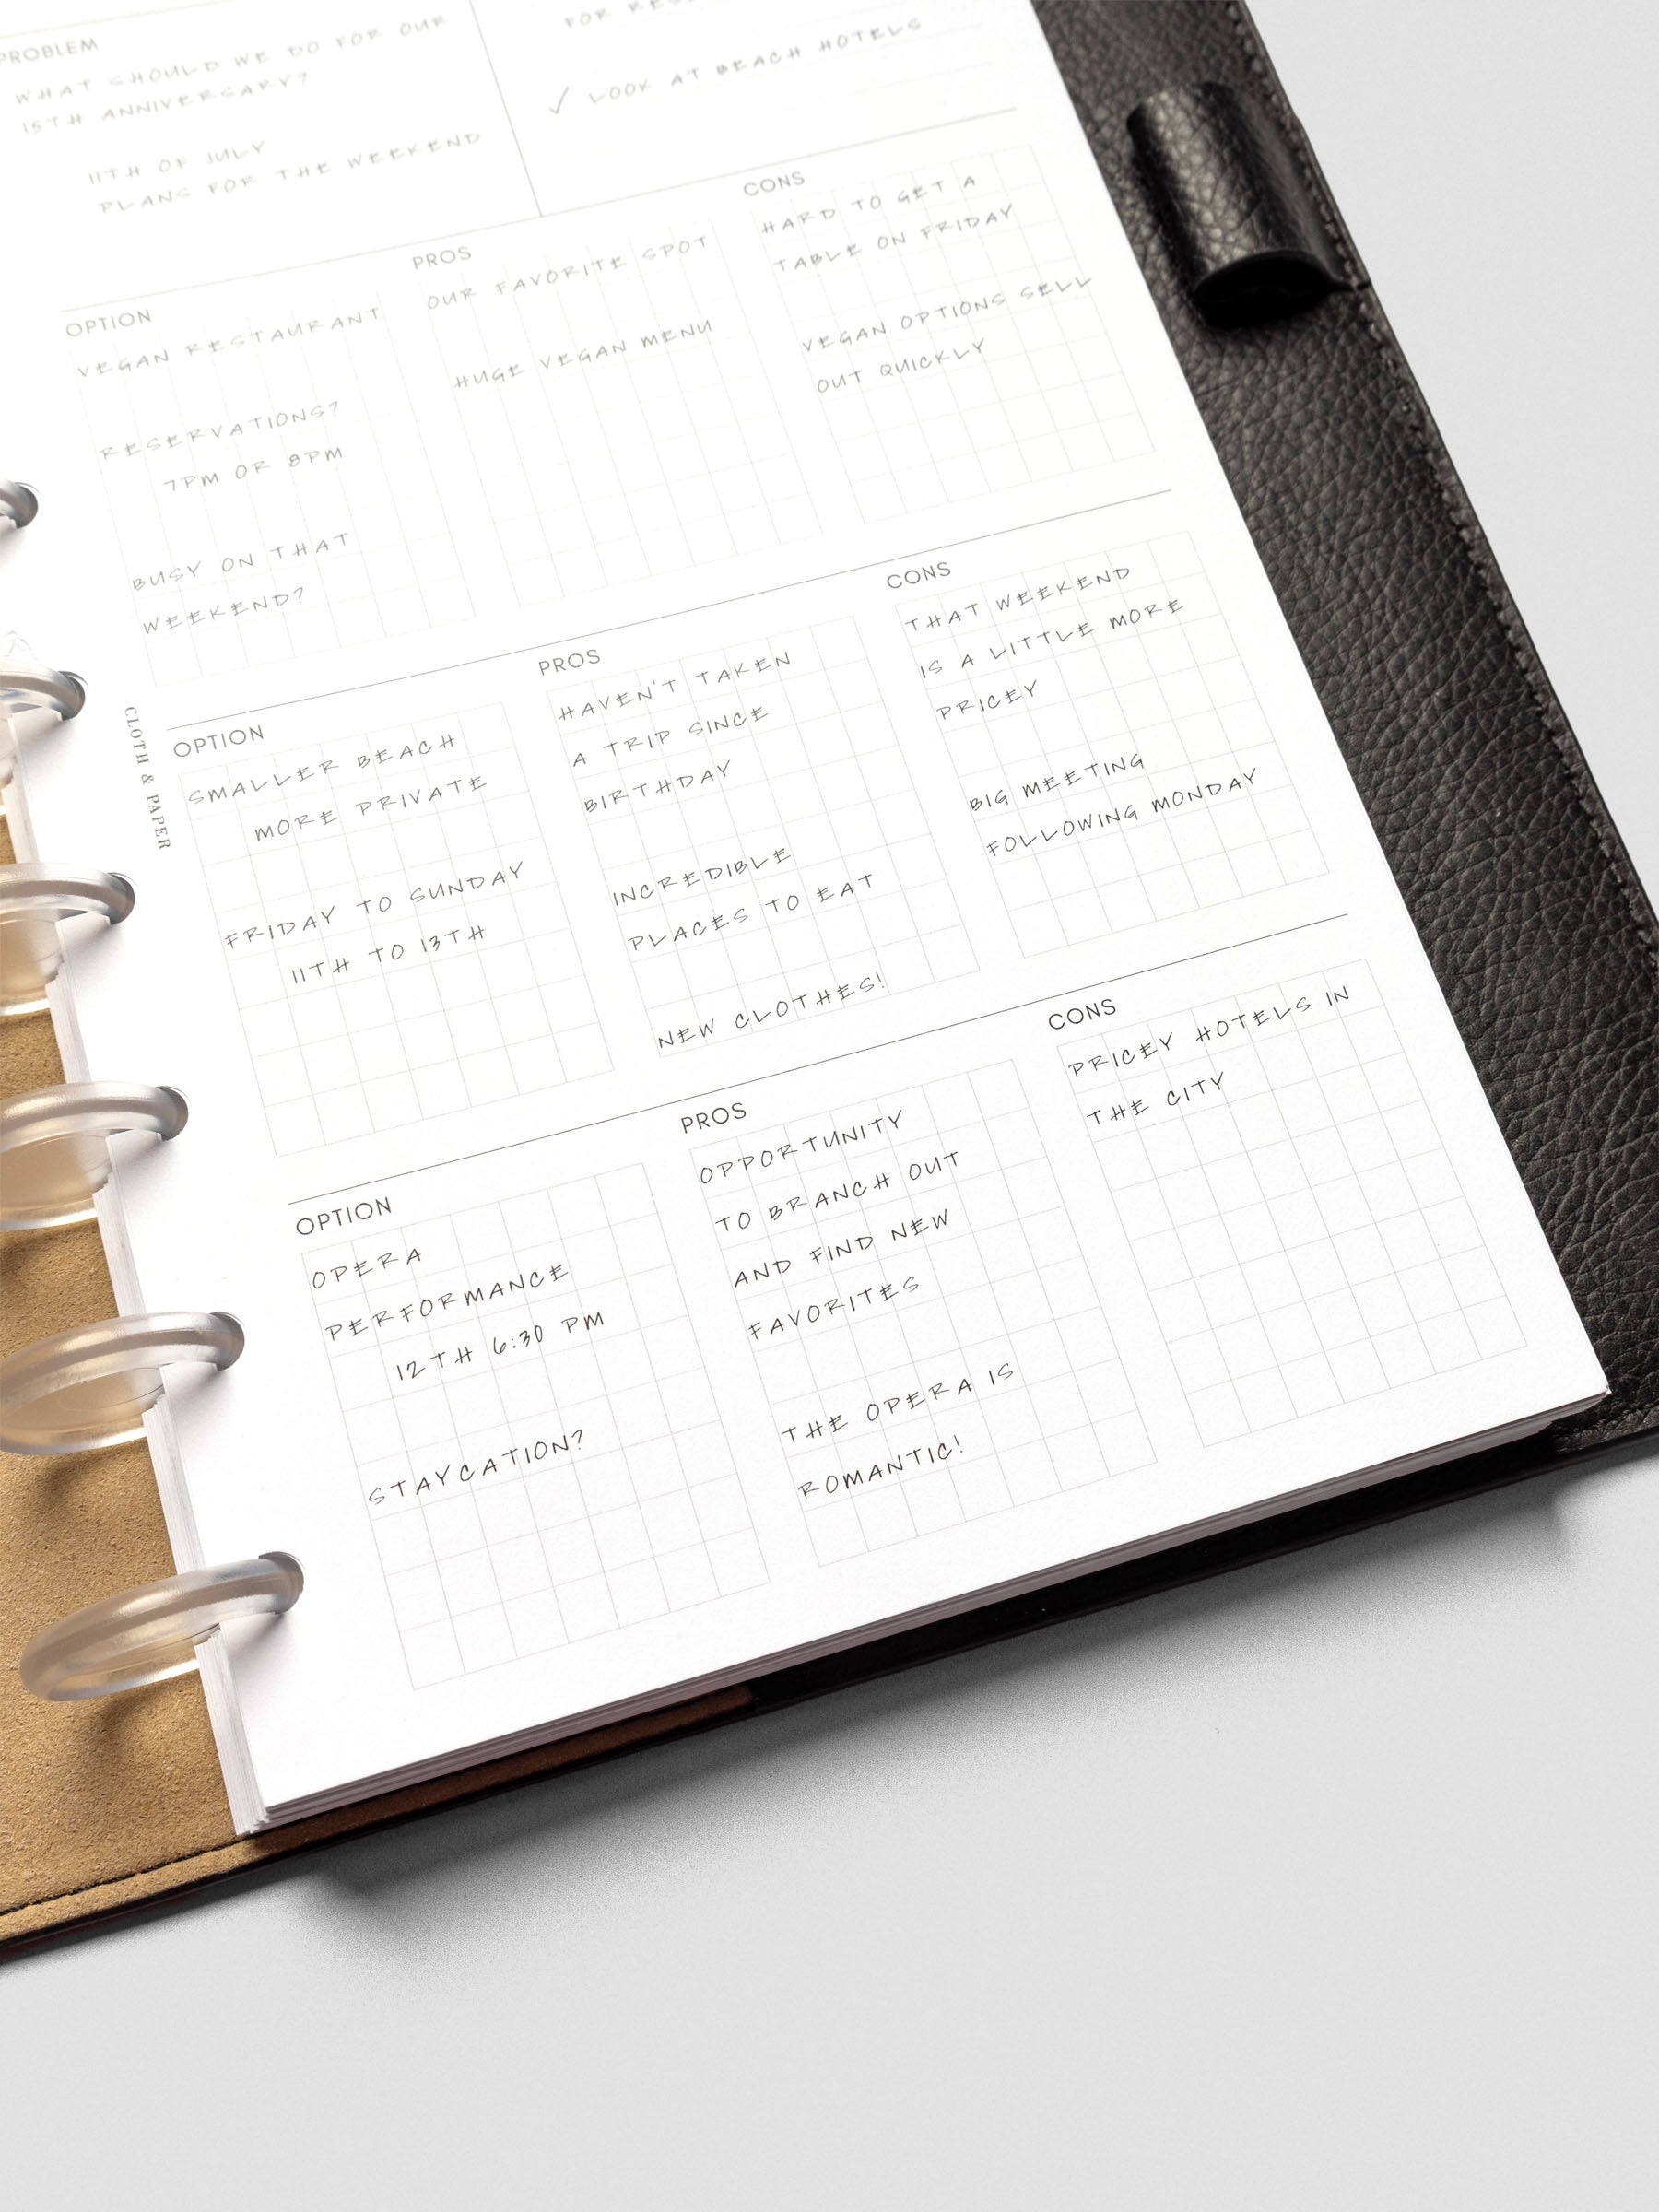 PROBLEM
WHAT SHOULD WE DO FOR OUR
15TH ANNIVERSARY?
11TH OF JULY
PLANS FOR THE WEEKEND
FOR
✓ LOOK AT BEACH HOTELS
OPTION
VEGAN RESTAURANT
RESERVATIONS?
7PM OR 8PM
BUSY ON THAT
WEEKEND?
PROS
OUR FAVORITE SPOT
HUGE VEGAN MENU
CONS
HARD TO GET A
TABLE ON FRIDAY
VEGAN OPTIONS SELL
OUT QUICKLY
OPTION
SMALLER BEACH
MORE PRIVATE
FRIDAY TO SUNDAY
11TH TO 13TH
PROS
HAVEN'T TAKEN
A TRIP SINCE
BIRTHDAY
INCREDIBLE
PLACES TO EAT
NEW CLOTHES!
CONS
THAT WEEKEND
IS A LITTLE MORE
PRICEY
BIG MEETING
FOLLOWING MONDAY
OPTION
OPERA
PERFORMANCE
12TH 6:30 PM
STAYCATION?
PROS
OPPORTUNITY
TO BRANCH OUT
AND FIND NEW
FAVORITES
THE OPERA IS
ROMANTIC!
CONS
PRICEY HOTELS IN
THE CITY
CLOTH & PAPER